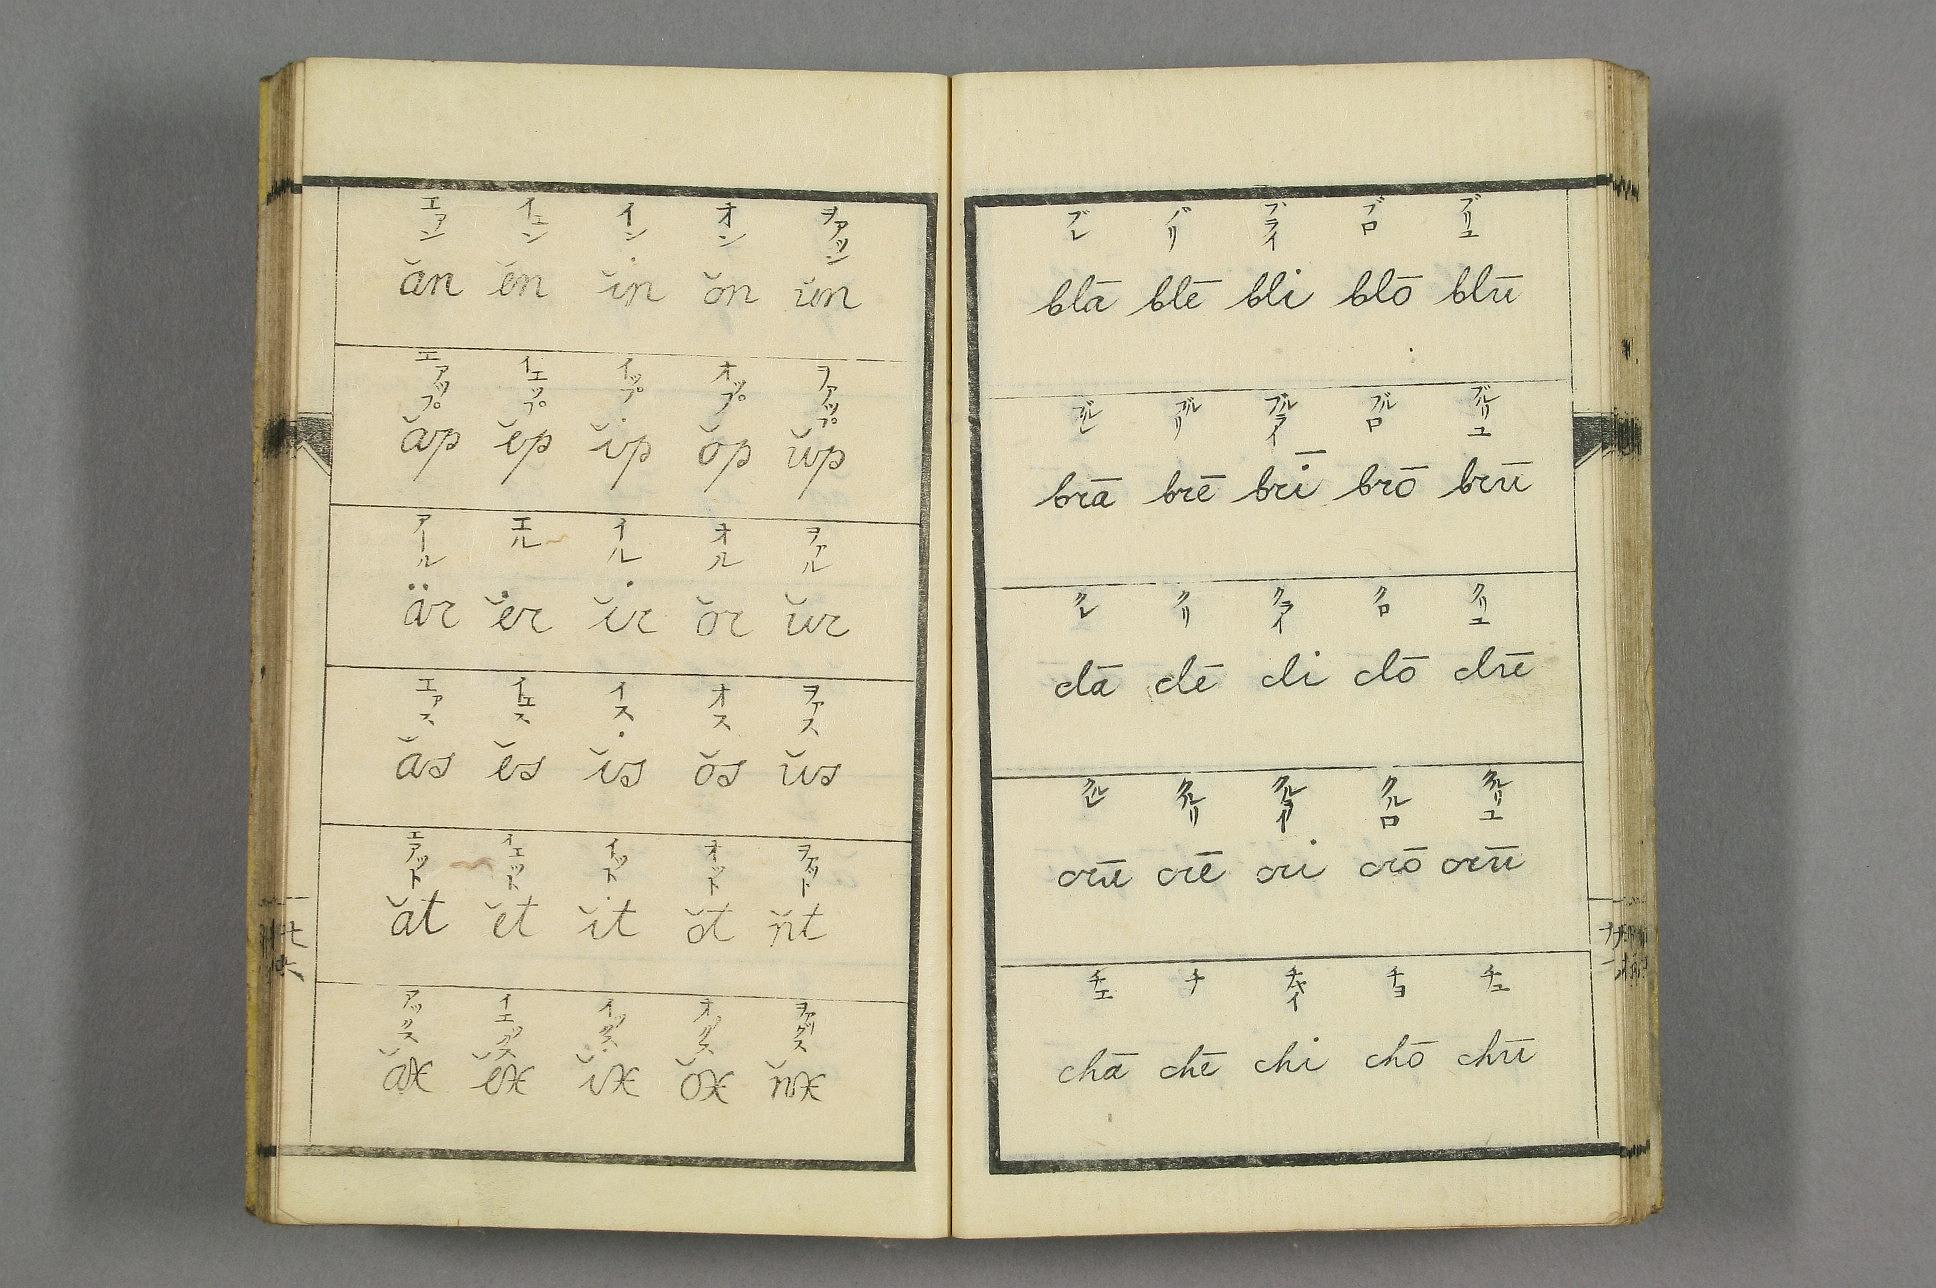 エァン イェン イン オン ヲァッン
ăn ĕn ĭn ŏn ŭn
エアップ イエップ イップ オップ ヲァップ
ăp ĕp ĭp ŏp ŭp
アール エル イル オル ヲァル
är ĕr ĭr ŏr ŭr
エァス イェス イス オス ヲァス
ăs ĕs ĭs ŏs ŭs
エアット イエット イット オット ヲァット
ăt ĕt ĭt ŏt ŭt
アックス イエックス イックス オックス ヲァックス
ăx ĕx ĭx ŏx ŭx
ブレ ブリ ブライ ブロ ブリユ
blā blē bli blō blū
ブルレ ブルリ ブルライ ブルロ ブルリユ
brā brē brī brō brū
クレ クリ クライ クロ クリユ
clā clē cli clō clū
クルレ クルリ クルライ クルロ クルリユ
crū crē cri crō crū
チエ チ チャイ チヨ チュ
chā chē chi chō chū